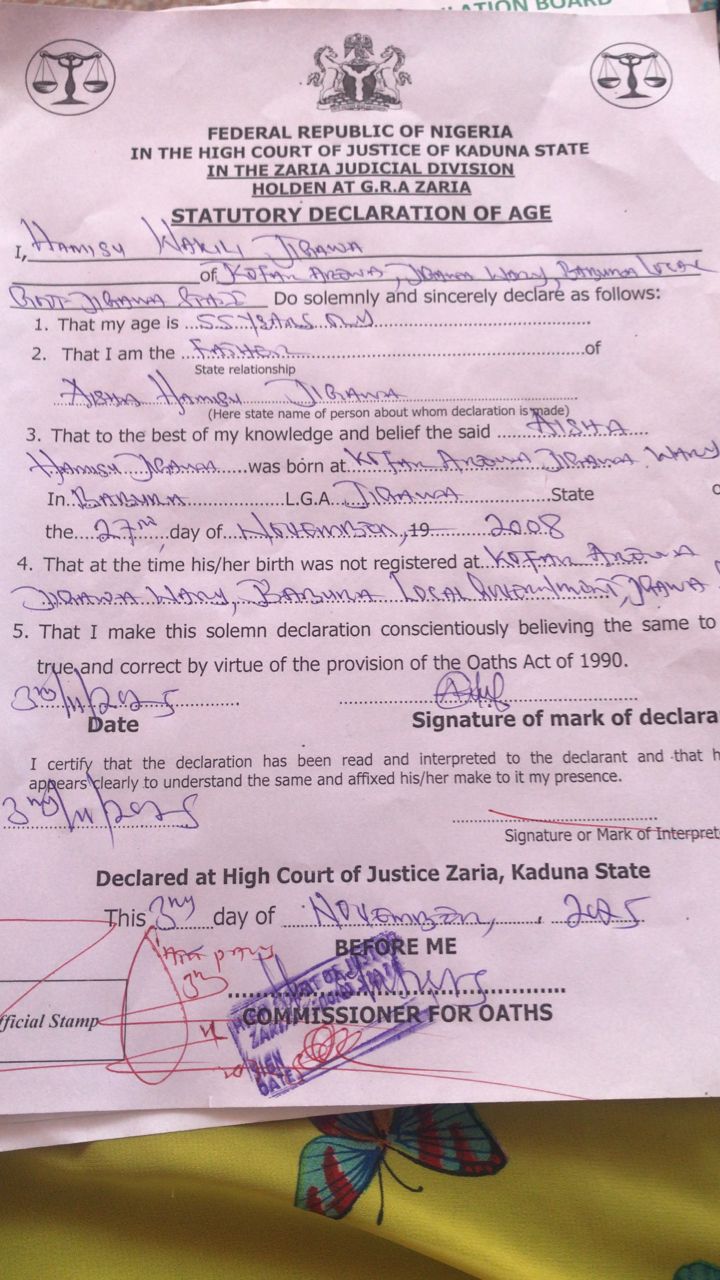 ATION BOARD
FEDERAL REPUBLIC OF NIGERIA
IN THE HIGH COURT OF JUSTICE OF KADUNA STATE
IN THE ZARIA JUDICIAL DIVISION
HOLDEN AT G.R.A ZARIA
STATUTORY DECLARATION OF AGE
I, HAMISU WAKILI JIGAWA
of KOFAR AREWA, JIGAWA WARD, BABURA LOCAL
GOVT. JIGAWA STATE Do solemnly and sincerely declare as follows:
1. That my age is 55 YEARS OLD
2. That I am the FATHER of
State relationship
AISHA HAMISU JIGAWA
(Here state name of person about whom declaration is made)
3. That to the best of my knowledge and belief the said AISHA
HAMISU JIGAWA was born at KOFAR AREWA JIGAWA WARD
In BABURA L.G.A JIGAWA State
the 27 day of NOVEMBER, 19 2008
4. That at the time his/her birth was not registered at KOFAR AREWA
JIGAWA WARD, BABURA LOCAL GOVERNMENT, JIGAWA
5. That I make this solemn declaration conscientiously believing the same to
true and correct by virtue of the provision of the Oaths Act of 1990.
3rd/11/2025
Date Signature of mark of declara
I certify that the declaration has been read and interpreted to the declarant and that h
appears clearly to understand the same and affixed his/her make to it my presence.
3rd/11/2025
Signature or Mark of Interpret
Declared at High Court of Justice Zaria, Kaduna State
This 3rd day of NOVEMBER, 2025
BEFORE ME
COMMISSIONER FOR OATHS
fficial Stamp
HIGH COURT OF JUSTICE
ZARIA
SIGN
DATE